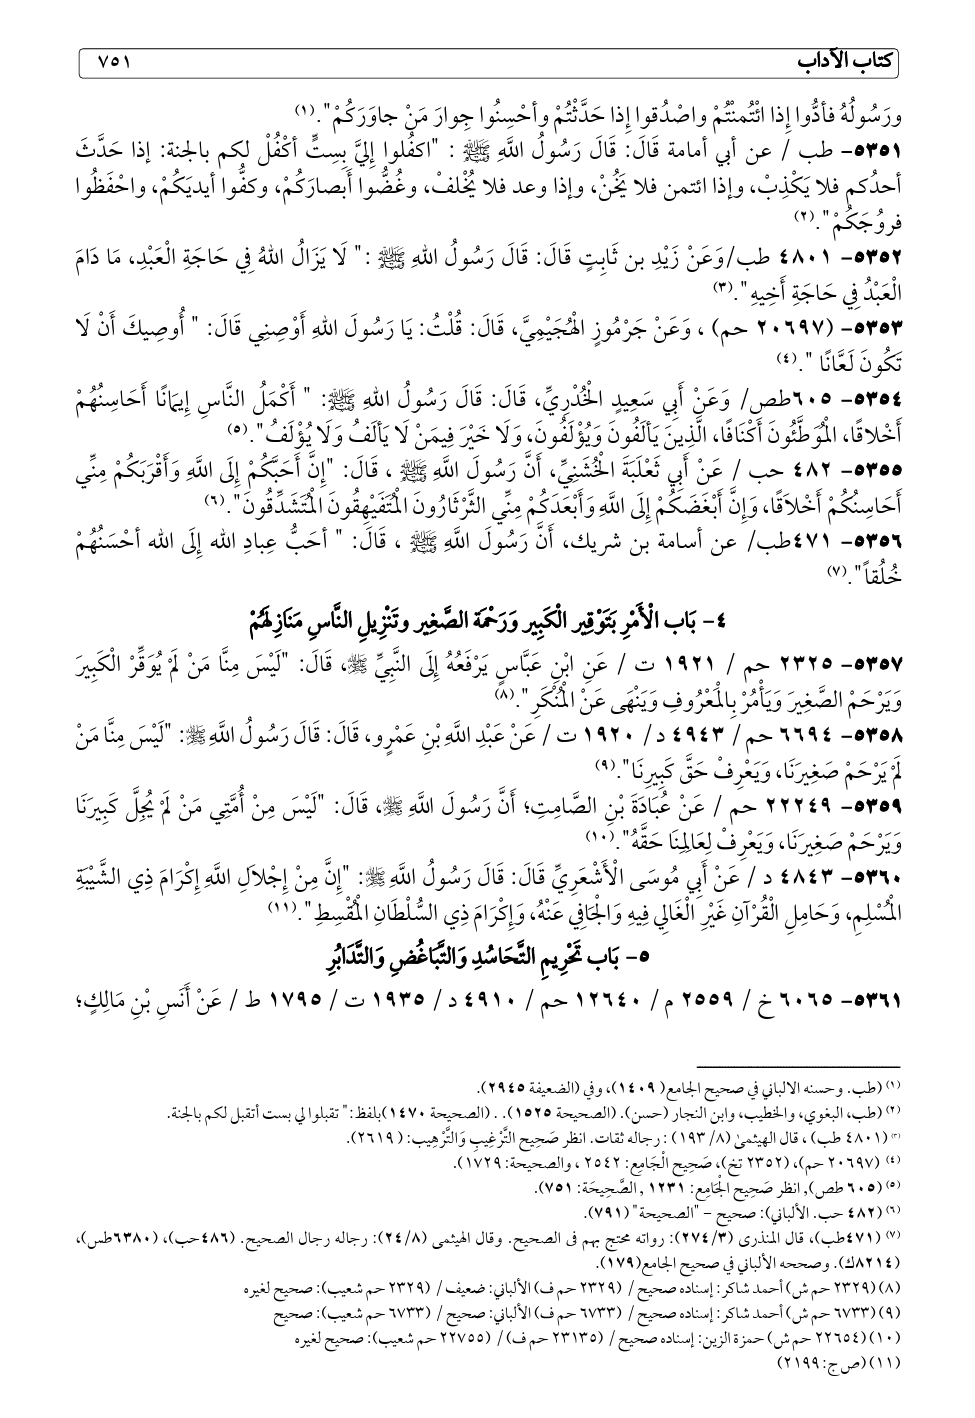 كتاب الآداب ٧٥١
ورَسُولُهُ فأدُّوا إذا ائْتُمنْتُمْ واصْدُقوا إذا حَدَّثْتُمْ وأحْسِنُوا جِوارَ مَنْ جاوَرَكُمْ".(١)
٥٣٥١- طب / عن أبي أمامة قَالَ: قَالَ رَسُولُ اللَّهِ ﷺ : "اكفُلوا إليَّ بِستٍّ أكْفُلْ لكم بالجنة: إذا حَدَّثَ
أحدُكم فلا يَكْذِبْ، وإذا ائتمن فلا يَخُنْ، وإذا وعد فلا يُخْلفْ، وغُضُّوا أَبصارَكُمْ، وكفُّوا أيديَكُمْ، واحْفَظُوا
فروُجَكُمْ".(٢)
٥٣٥٢- ٤٨٠١ طب/وَعَنْ زَيْدِ بن ثَابِتٍ قَالَ: قَالَ رَسُولُ اللهِ ﷺ :" لَا يَزَالُ اللهُ فِي حَاجَةِ الْعَبْدِ، مَا دَامَ
الْعَبْدُ فِي حَاجَةِ أَخِيهِ".(٣)
٥٣٥٣- (٢٠٦٩٧ حم) ، وَعَنْ جَرْمُوزٍ الْهُجَيْمِيِّ، قَالَ: قُلْتُ: يَا رَسُولَ اللهِ أَوْصِنِي قَالَ: " أُوصِيكَ أَنْ لَا
تَكُونَ لَعَّانًا ".(٤)
٥٣٥٤- ٦٠٥طص/ وَعَنْ أَبِي سَعِيدٍ الْخُدْرِيِّ، قَالَ: قَالَ رَسُولُ اللهِ ﷺ: " أَكْمَلُ النَّاسِ إِيمَانًا أَحَاسِنُهُمْ
أَخْلاقًا، الْمُوَطَّئُونَ أَكْنَافًا، الَّذِينَ يَأْلَفُونَ وَيُؤْلَفُونَ، وَلَا خَيْرَ فِيمَنْ لَا يَأْلَفُ وَلَا يُؤْلَفُ".(٥)
٥٣٥٥- ٤٨٢ حب / عَنْ أَبِي ثَعْلَبَةَ الْخُشَنِيِّ، أَنَّ رَسُولَ اللَّهِ ﷺ ، قَالَ: "إِنَّ أَحَبَّكُمْ إِلَى اللَّهِ وَأَقْرَبَكُمْ مِنِّي
أَحَاسِنُكُمْ أَخْلَاقًا، وَإِنَّ أَبْغَضَكُمْ إِلَى اللَّهِ وَأَبْعَدَكُمْ مِنِّي الثَّرْثَارُونَ الْمُتَفَيْهِقُونَ الْمُتَشَدِّقُونَ".(٦)
٥٣٥٦- ٤٧١طب/ عن أسامة بن شريك، أَنَّ رَسُولَ اللَّهِ ﷺ ، قَالَ: " أحَبُّ عِبادِ الله إلَى الله أحْسَنُهُمْ
خُلُقاً".(٧)
٤- بَاب الْأَمْرِ بَتَوْقِيرِ الْكَبِيرِ وَرَحْمَة الصَّغِير وتَنْزِيلِ النَّاسِ مَنَازِلَهُمْ
٥٣٥٧- ٢٣٢٥ حم / ١٩٢١ ت / عَنِ ابْنِ عَبَّاسٍ يَرْفَعُهُ إِلَى النَّبِيِّ ﷺ، قَالَ: "لَيْسَ مِنَّا مَنْ لَمْ يُوَقِّرْ الْكَبِيرَ
وَيَرْحَمْ الصَّغِيرَ وَيَأْمُرْ بِالْمَعْرُوفِ وَيَنْهَى عَنْ الْمُنْكَرِ".(٨)
٥٣٥٨- ٦٦٩٤ حم / ٤٩٤٣ د/ ١٩٢٠ ت / عَنْ عَبْدِ اللَّهِ بْنِ عَمْرٍو، قَالَ: قَالَ رَسُولُ اللَّهِ ﷺ: "لَيْسَ مِنَّا مَنْ
لَمْ يَرْحَمْ صَغِيرَنَا، وَيَعْرِفْ حَقَّ كَبِيرِنَا".(٩)
٥٣٥٩- ٢٢٢٤٩ حم / عَنْ عُبَادَةَ بْنِ الصَّامِتِ؛ أَنَّ رَسُولَ اللَّهِ ﷺ، قَالَ: "لَيْسَ مِنْ أُمَّتِي مَنْ لَمْ يُجِلَّ كَبِيرَنَا
وَيَرْحَمْ صَغِيرَنَا، وَيَعْرِفْ لِعَالِمِنَا حَقَّهُ".(١٠)
٥٣٦٠- ٤٨٤٣ د / عَنْ أَبِي مُوسَى الْأَشْعَرِيِّ قَالَ: قَالَ رَسُولُ اللَّهِ ﷺ: "إِنَّ مِنْ إِجْلَالِ اللَّهِ إِكْرَامَ ذِي الشَّيْبَةِ
الْمُسْلِمِ، وَحَامِلِ الْقُرْآنِ غَيْرِ الْغَالِي فِيهِ وَالْجَافِي عَنْهُ، وَإِكْرَامَ ذِي السُّلْطَانِ الْمُقْسِطِ".(١١)
٥- بَاب تَحْرِيمِ التَّحَاسُدِ وَالتَّبَاغُضِ وَالتَّدَابُرِ
٥٣٦١- ٦٠٦٥ خ / ٢٥٥٩ م/ ١٢٦٤٠ حم / ٤٩١٠ د/ ١٩٣٥ ت / ١٧٩٥ ط / عَنْ أَنَسِ بْنِ مَالِكٍ؛
(١) (طب. وحسنه الالباني في صحيح الجامع( ١٤٠٩)، وفي (الضعيفة ٢٩٤٥).
(٢) (طب، البغوي، والخطيب، وابن النجار (حسن). (الصحيحة ١٥٢٥). . (الصحيحة ١٤٧٠)بلفظ:" تقبلوا لي بست أتقبل لكم بالجنة.
(٣) (٤٨٠١ طب) ، قال الهيثمىٰ (٨/ ١٩٣) : رجاله ثقات. انظر صَحِيح التَّرْغِيبِ وَالتَّرْهِيب: ( ٢٦١٩).
(٤) (٢٠٦٩٧ حم)، (٢٣٥٢ تخ)، صَحِيح الْجَامِع: ٢٥٤٢ ، والصحيحة: ١٧٢٩).
(٥) (٦٠٥ طص), انظر صَحِيح الْجَامِع: ١٢٣١ , الصَّحِيحَة: ٧٥١).
(٦) (٤٨٢ حب. الألباني): صحيح - "الصحيحة" (٧٩١).
(٧) (٤٧١طب)، قال المنذرى (٢٧٤/٣): رواته محتج بهم فى الصحيح. وقال الهيثمى (٢٤/٨): رجاله رجال الصحيح. (٤٨٦حب)، (٦٣٨٠طس)،
(٨٢١٤ك). وصححه الألباني في صحيح الجامع(١٧٩).
(٨) (٢٣٢٩ حم ش) أحمد شاكر: إسناده صحيح / (٢٣٢٩ حم ف) الألباني: ضعيف/ (٢٣٢٩ حم شعيب): صحيح لغيره
(٩) (٦٧٣٣ حم ش) أحمد شاكر: إسناده صحيح / (٦٧٣٣ حم ف) الألباني: صحيح / (٦٧٣٣ حم شعيب): صحيح
(١٠) (٢٢٦٥٤ حم ش) حمزة الزين: إسناده صحيح / (٢٣١٣٥ حم ف) / (٢٢٧٥٥ حم شعيب): صحيح لغيره
(١١) (ص ج: ٢١٩٩)